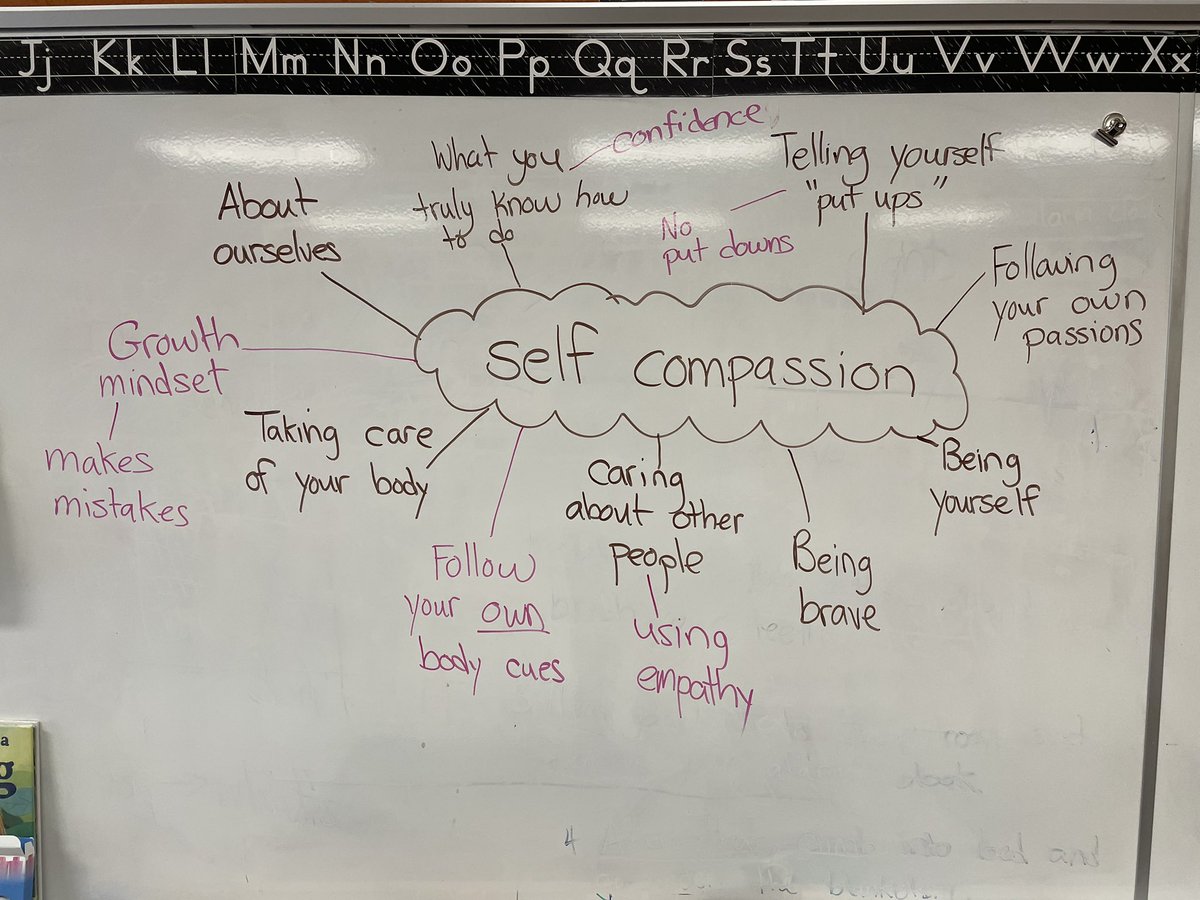 Jj Kk Ll Mm Nn Oo Pp Qq Rr Ss Tt Uu Vv Ww Xx
confidence
What you
truly know how
to do
Telling yourself
"put ups"
No
put downs
About
ourselves
Following
your own
passions
Growth
mindset
makes
mistakes
self compassion
Taking care
of your body
Being
yourself
Caring
about other
people
using
empathy
Being
brave
Follow
your own
body cues
a
g
4